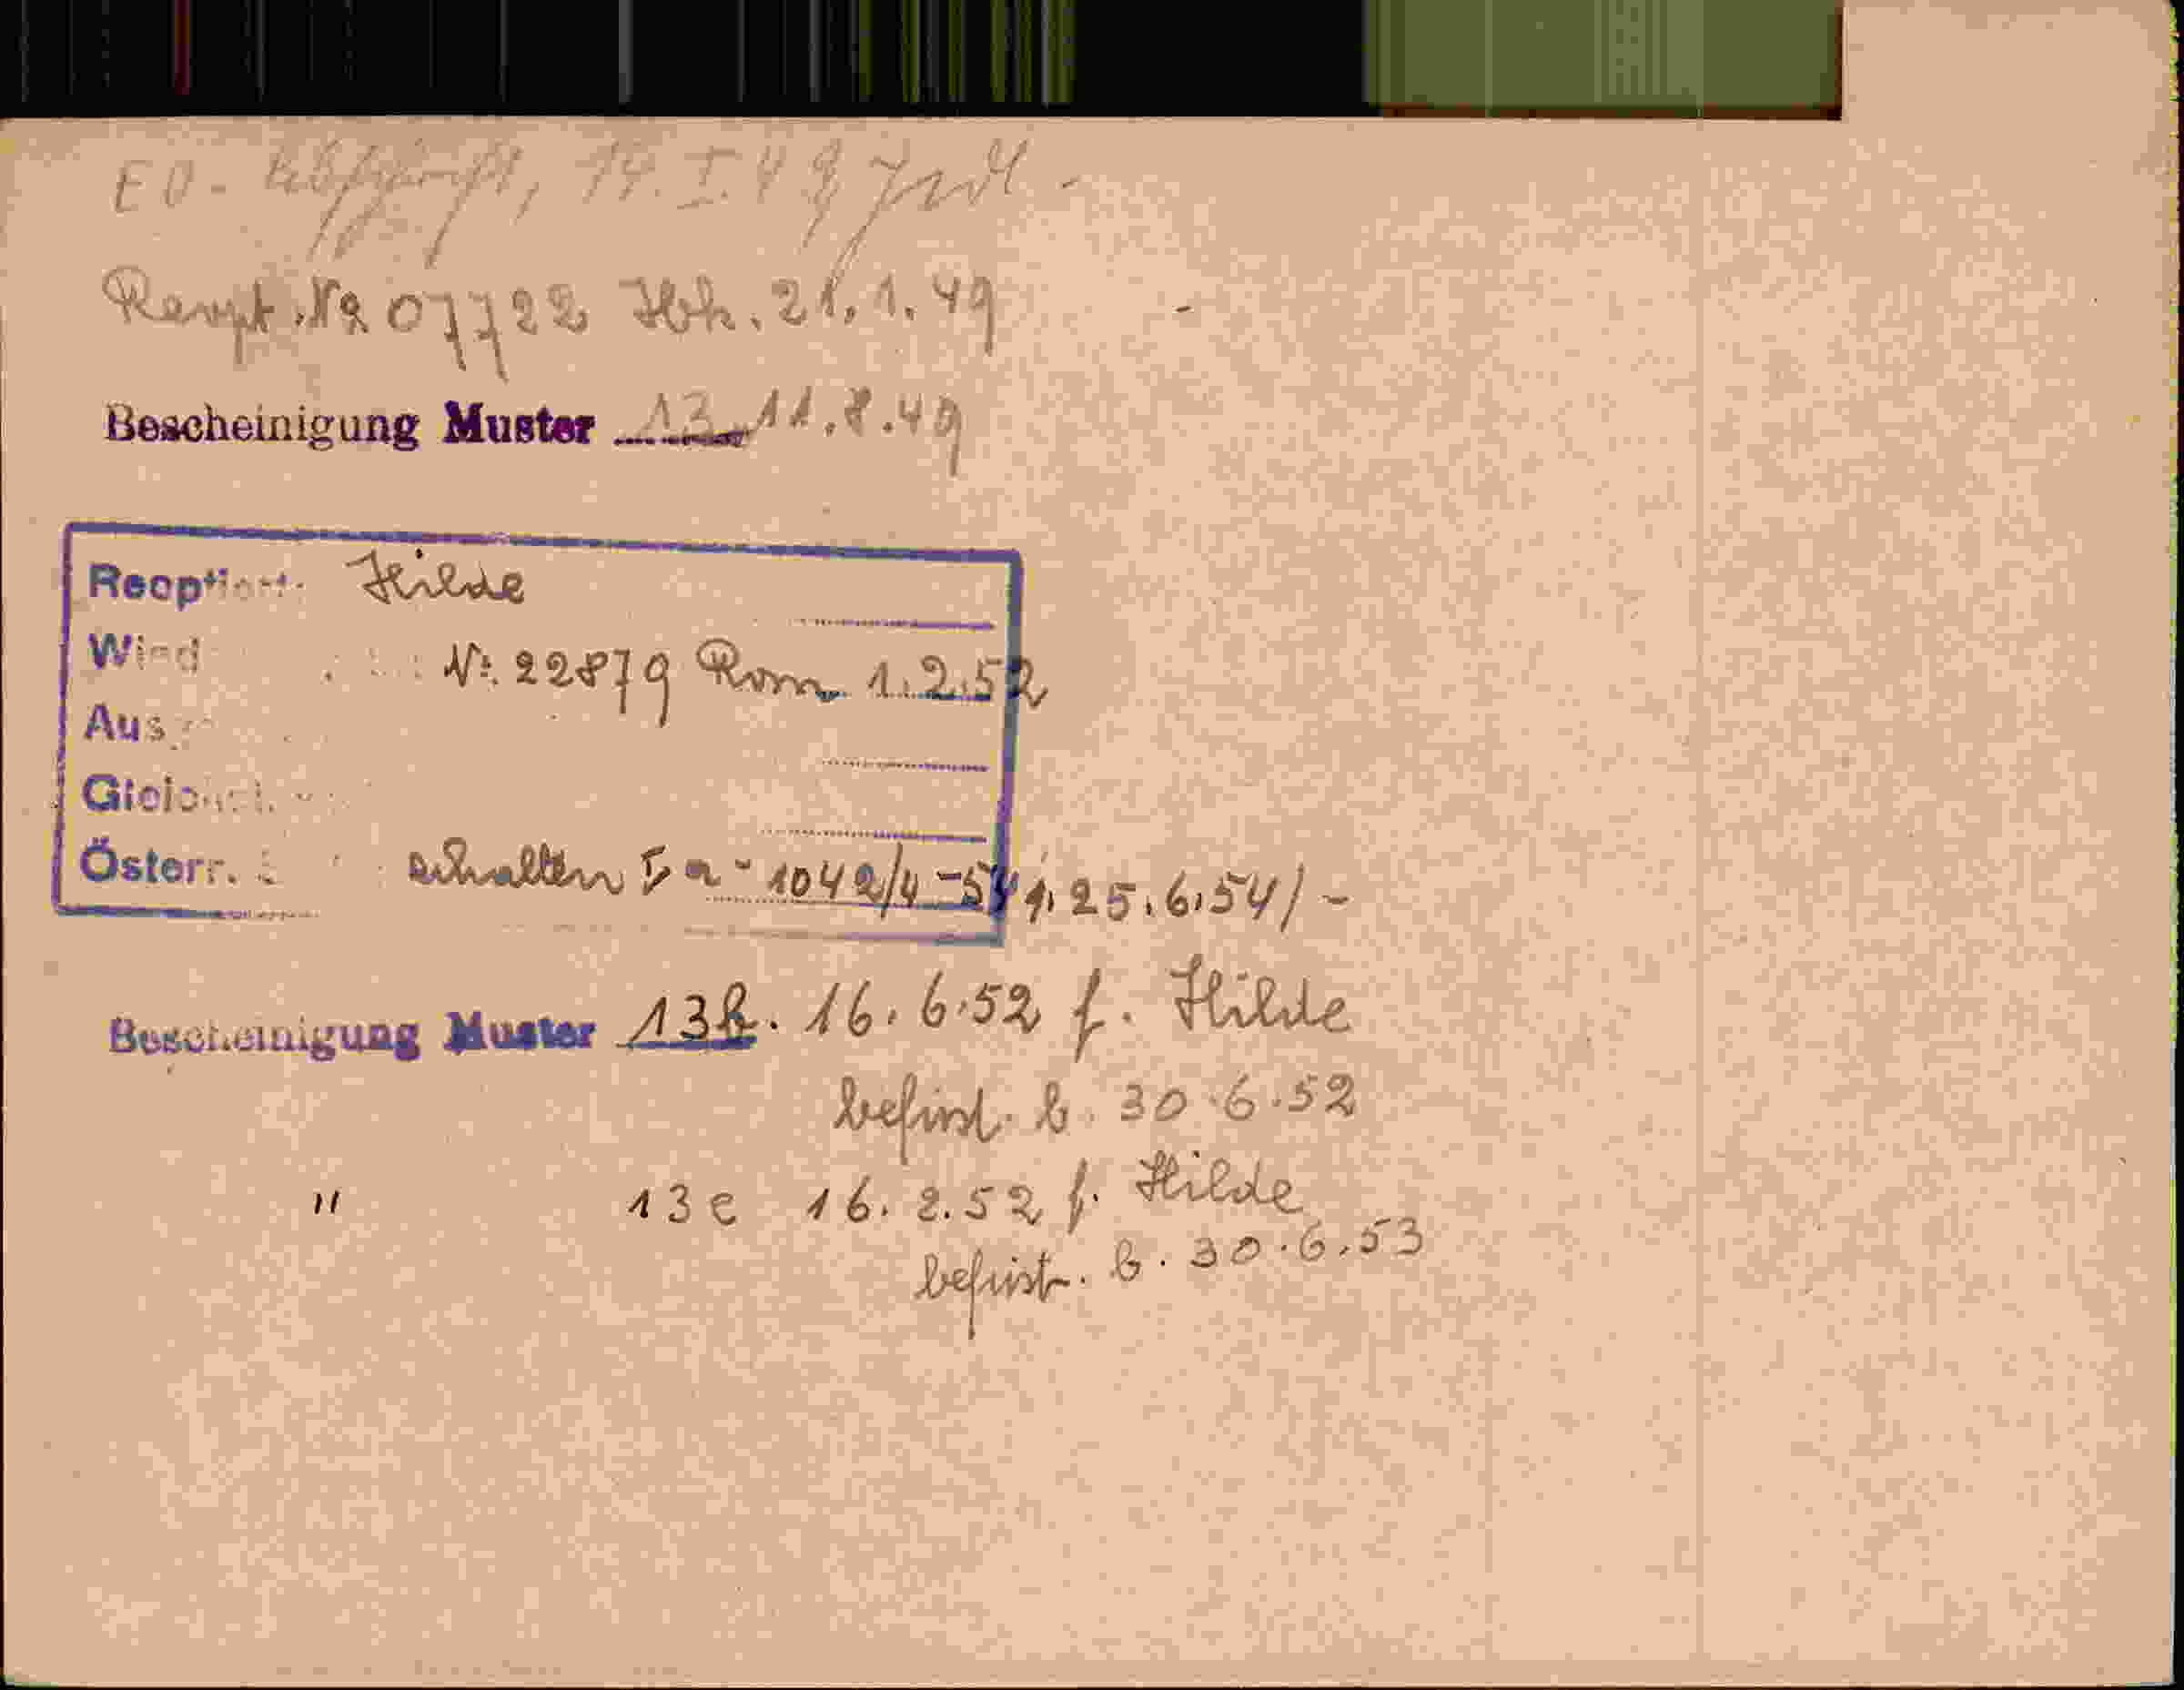 E0- 14.I.49
Reopt. No 07722 Ibk. 21.1.49
Bescheinigung Muster 13 11.8.49
Hilde
Nr. 22879 Rom 1.2.52
Österr. erhalten I a - 1042/4-54 25.6.54/-
Bescheinigung Muster 13b. 16.6.52 f. Hilde
befrist. b. 30.6.52
" 13e 16.2.52 f. Hilde
befrist. b. 30.6.53